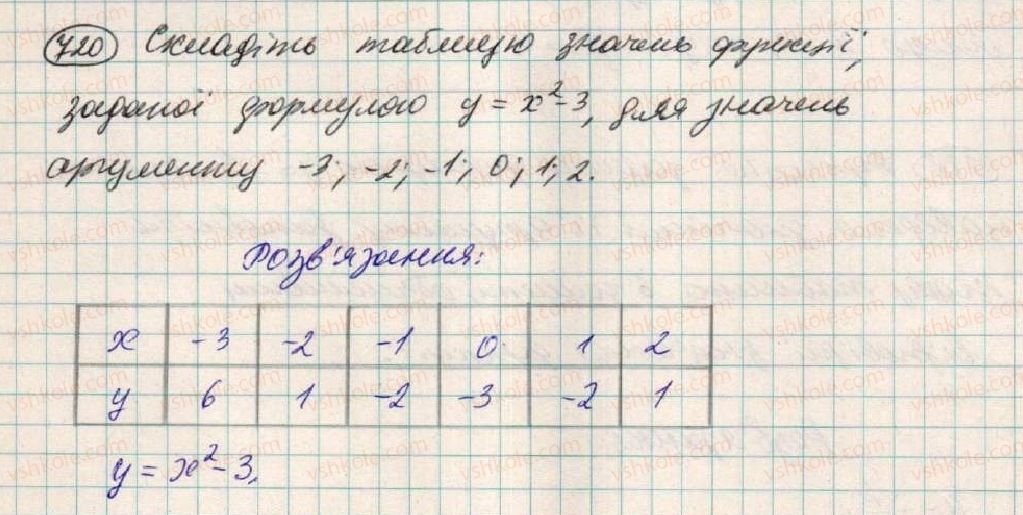 720 Складіть таблицю значень функції,
заданої формулою y = x² - 3, для значень
аргументу -3; -2; -1; 0; 1; 2.
Розв'язання:
x -3 -2 -1 0 1 2
y 6 1 -2 -3 -2 1
y = x² - 3.